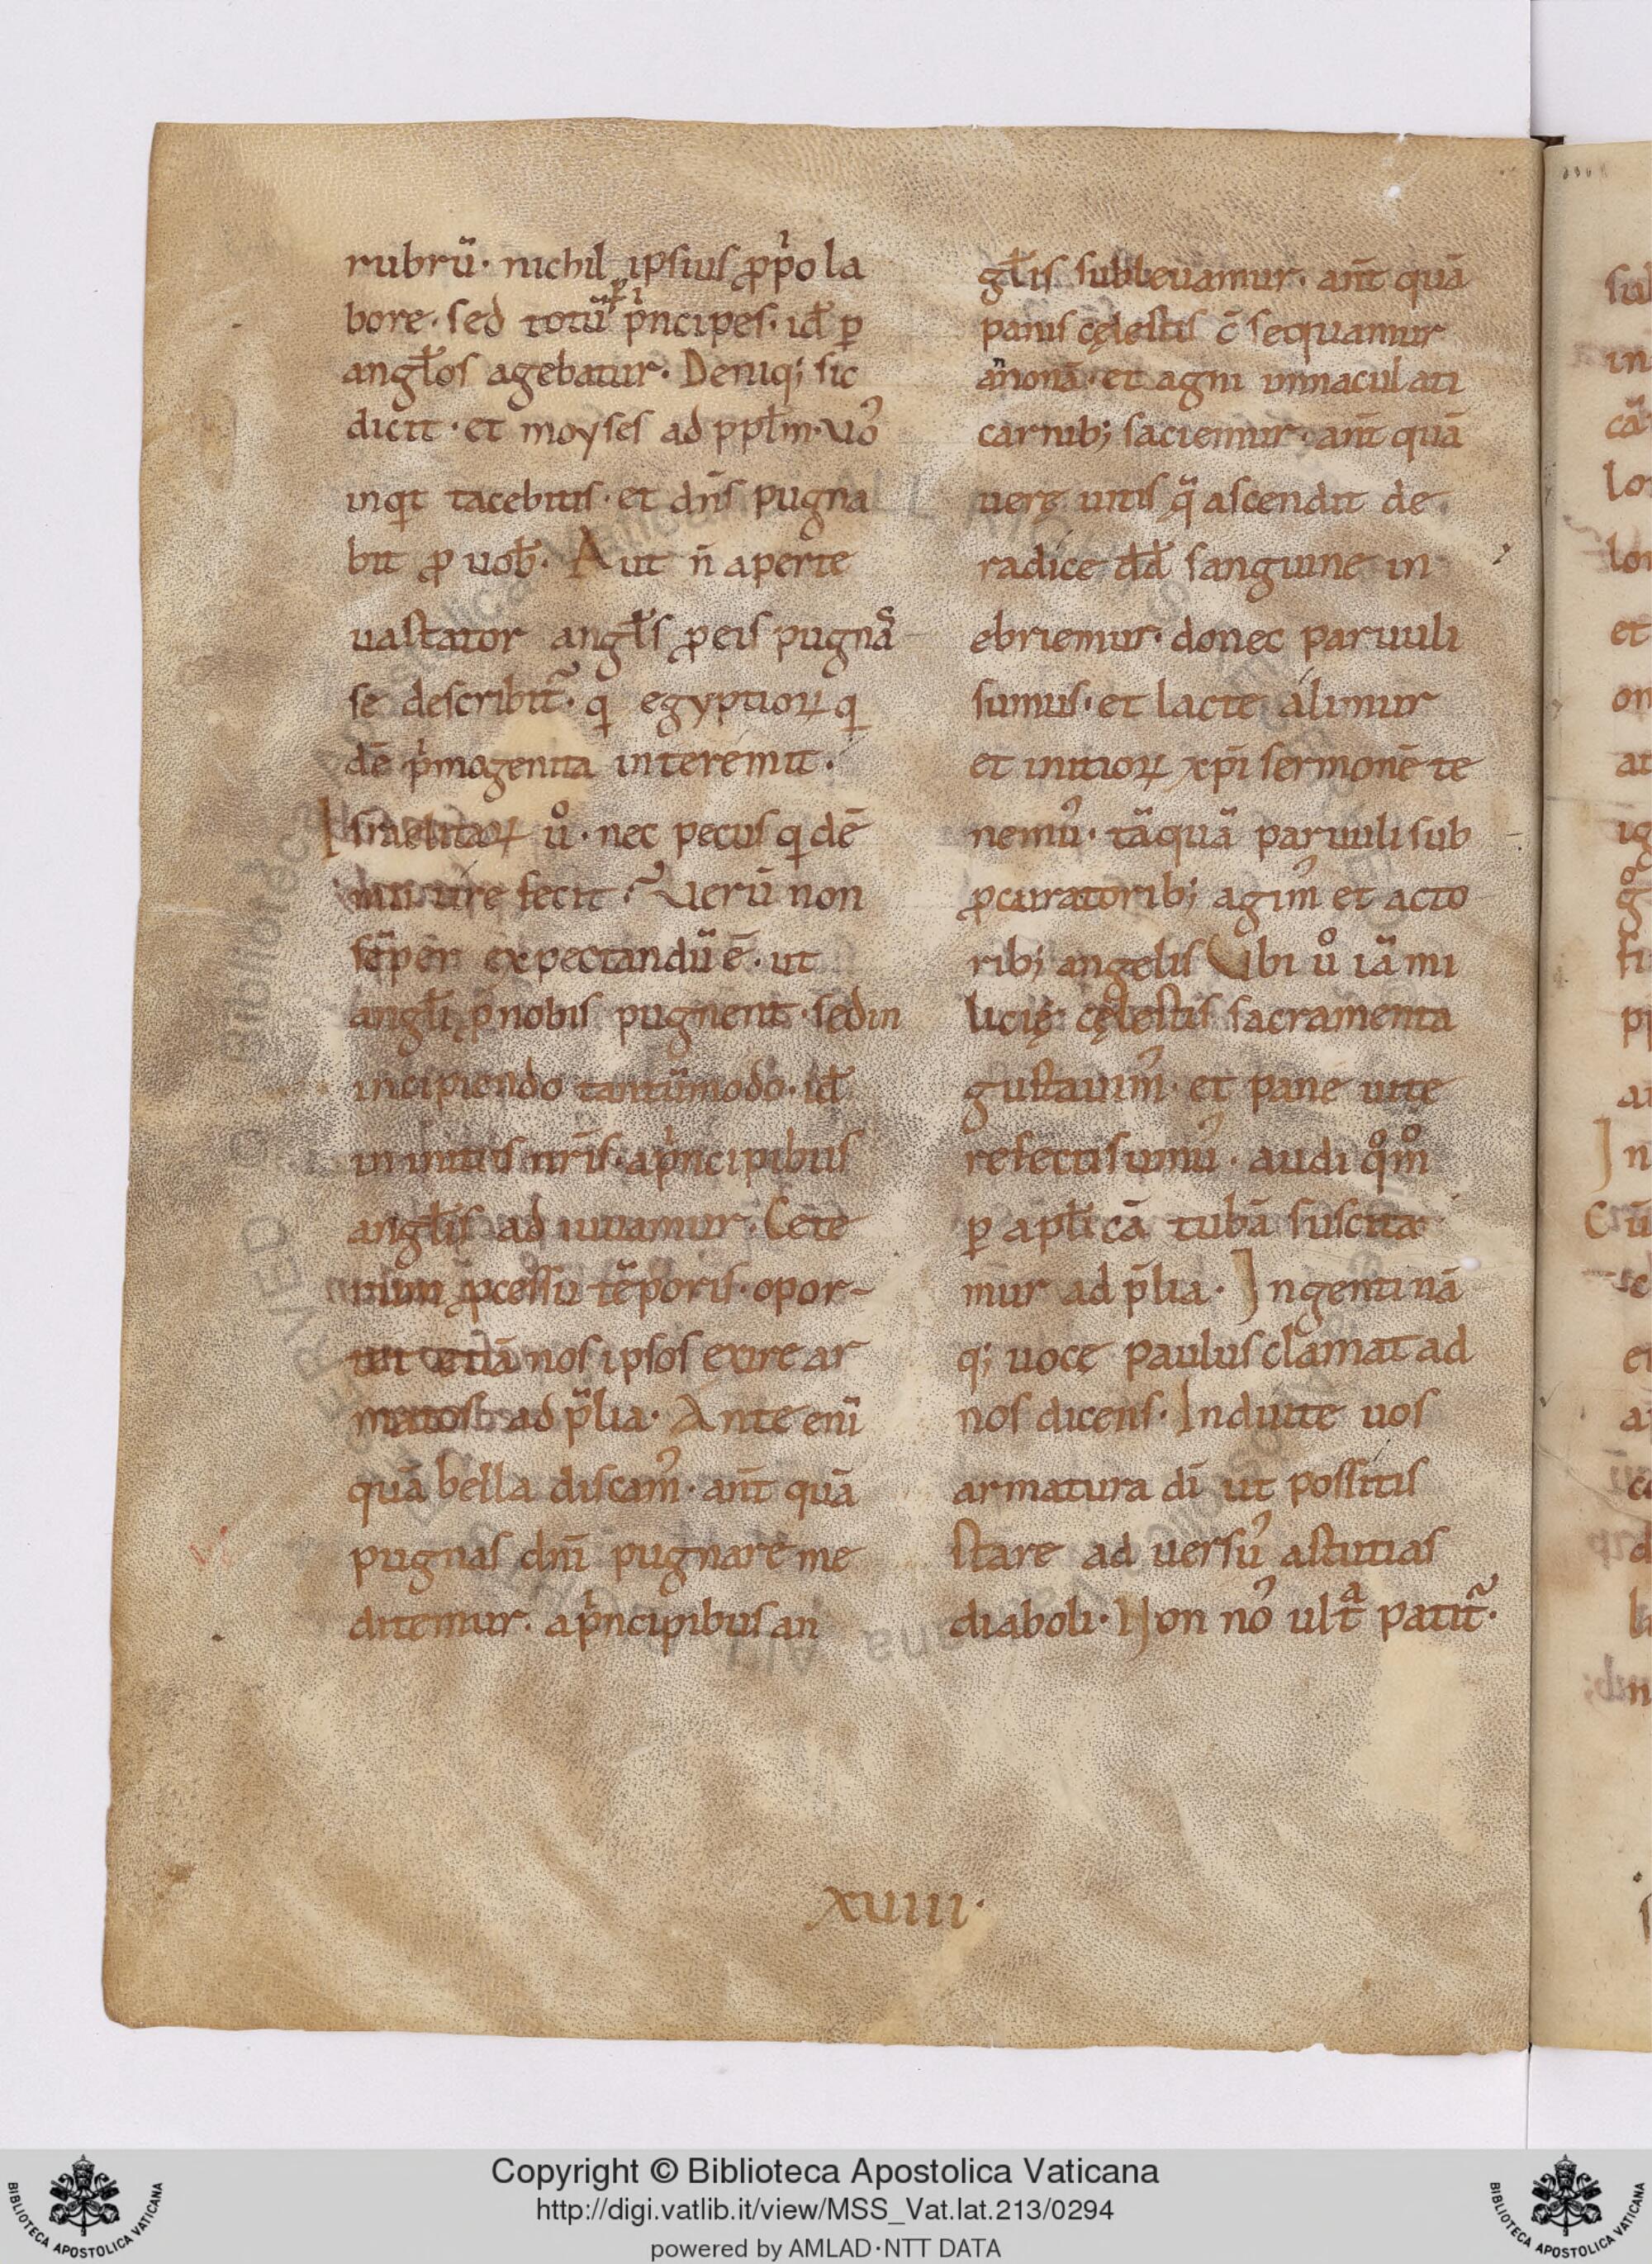 rubrū· nichil ipsius ꝓpͥo la
bore· sed totū ꝑ pͥncipes· id̄ ꝑ
angl̄os agebatur· Deniq; sic
dicit· et moyses ad ppl̄m· uoˀ
inqͥt tacebitis· et dn̄s pugna
bit ꝓ uob̄· Aut n̄ aperte
uastator angl̄s ꝓ eis pugnas
se describit᷑· qͥ egyptioꝝ qͥ
dē pͥmogenita interemit·
Israelitaoꝝ ů· nec pecus qͥdē
mutire fecit· Uerū non
sēper expectandū ē· ut
angl̄i ꝓ nobis pugnent· sed in
incipiendo tantūmodo· id̄
in initiis nr̄is· a pͥncipibus
angl̄is ad iuuamur· Cete
rum ꝓcessu tēporis· opor-
tet etiā nos ipsos exire ar
matos ad p̄lia· Ante enī
quā bella discamˀ· ant̄ quā
pugnas dn̄i pugnare me
ditemur· a pͥncipibus an
gl̄is subleuamur· ant̄ quā
panis cęlestis c̄sequamur
annonā· et agni inmaculati
carnib; saciemur· ant̄ quā
uerę uitis q̄ ascendit de
radice dd̄ sanguine in
ebriemur· donec paruuli
sumus· et lacte alimur
et initioꝝ xp̄i sermonē te
nemuˀ· tāquā paruuli sub
ꝓcuratorib; agimˀ et acto
rib; angelis Ubi ů iā mi
licię cęlestis sacramenta
gustauimˀ· et pane uite
refecti sumuˀ· audi qͦmͦ
ꝑ apl̄icā tubā suscita
mur ad p̄lia· Ingenti nā
q; uoce paulus clamat ad
nos dicens· Induite uos
armatura dī ut possitis
stare ad uersuˀ astutias
diaboli· Non noˀ ultᵃ patit᷑·
xuiiii·
Copyright © Biblioteca Apostolica Vaticana
http://digi.vatlib.it/view/MSS_Vat.lat.213/0294
powered by AMLAD·NTT DATA
BIBLIOTECA APOSTOLICA VATICANA
BIBLIOTECA APOSTOLICA VATICANA